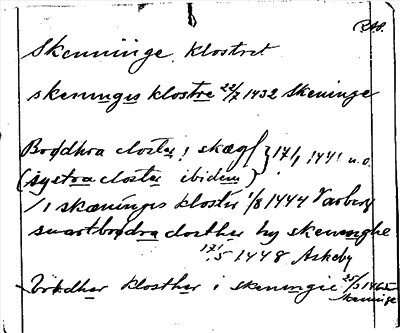 RAP.
Skenninge, klostret
skeninges klostre 22/7 1432 Skeninge
Brødhra closter i skægf } 17/1 1441 u.o.
(systra closter ibidem)
/i skæninges kloster 1/8 1444 Varberg
swartbrødra closther by skeninghe
17/5 1448 Askeby
Brødher klosther i skeningie 25/3 1465 Skeninge